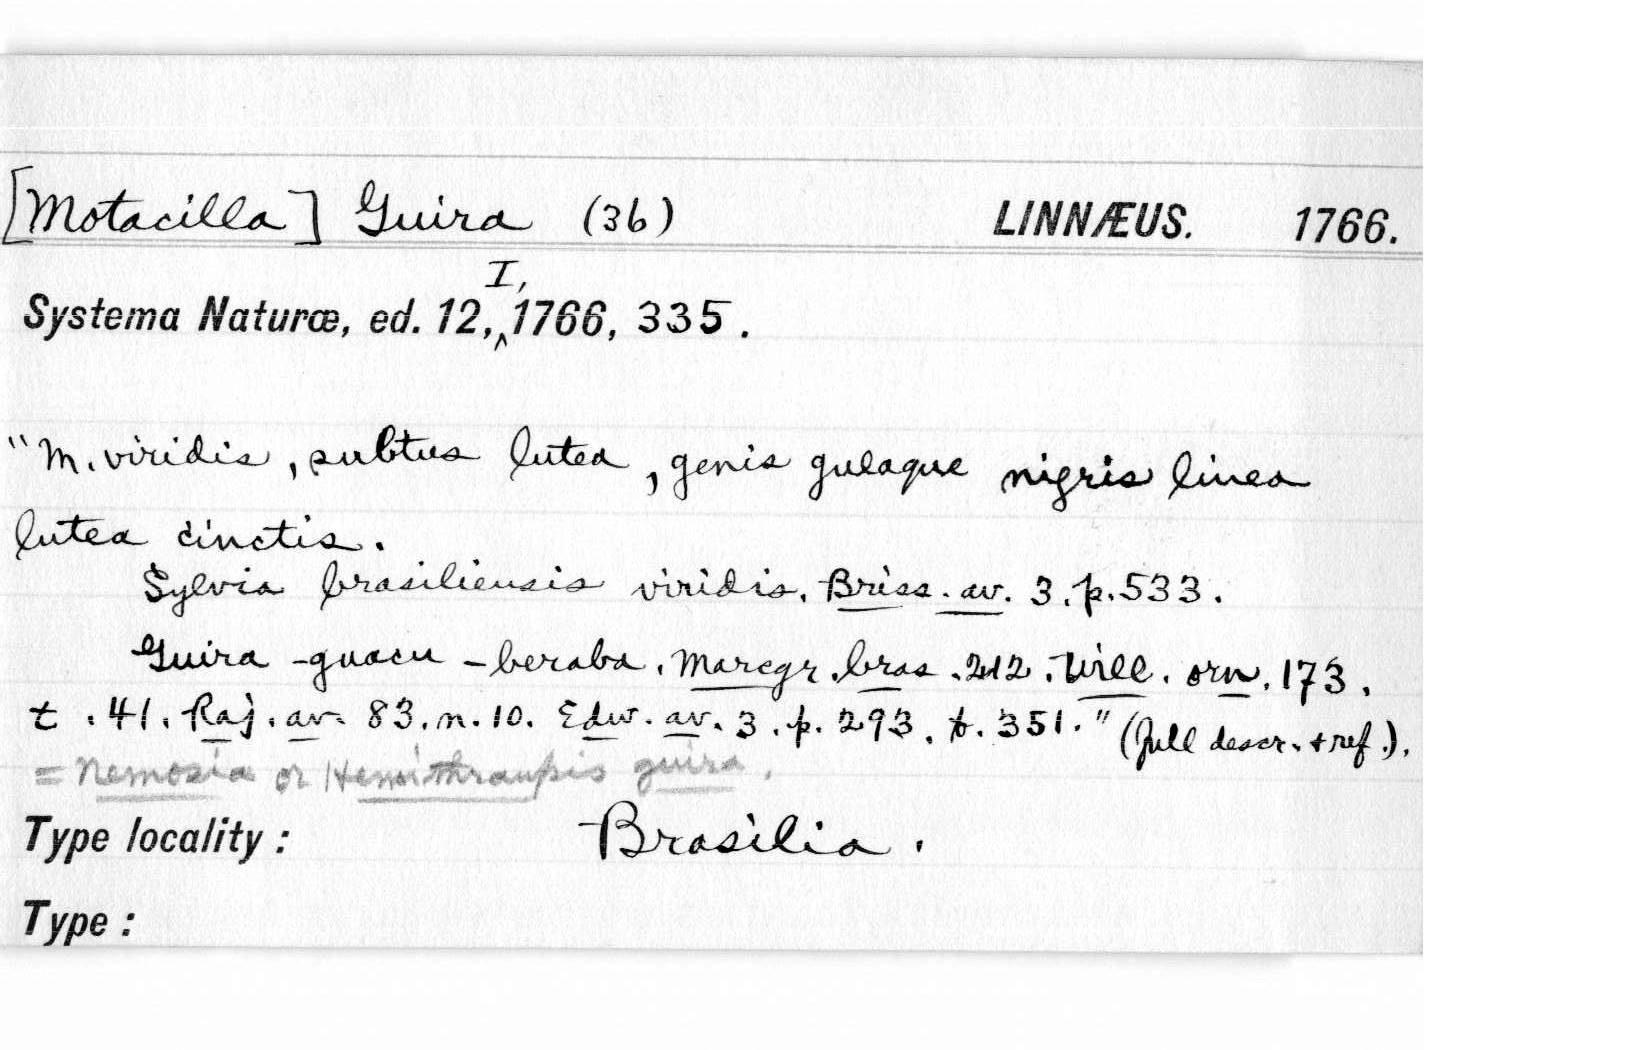 [Motacilla] Guira (36) LINNÆUS. 1766.
I,
Systema Naturæ, ed. 12,‸1766, 335.
"M. viridis, subtus lutea, genis gulaque nigris linea
lutea cinctis.
Sylvia brasiliensis viridis. Briss. av. 3. p. 533.
Guira-guacu-beraba. Marcgr. bras. 212. Will. orn. 173.
t. 41. Raj. av. 83. n. 10. Edw. av. 3. p. 293. t. 351." (full descr. + ref.).
= Nemosia or Hemithraupis guira.
Type locality: Brasilia.
Type: